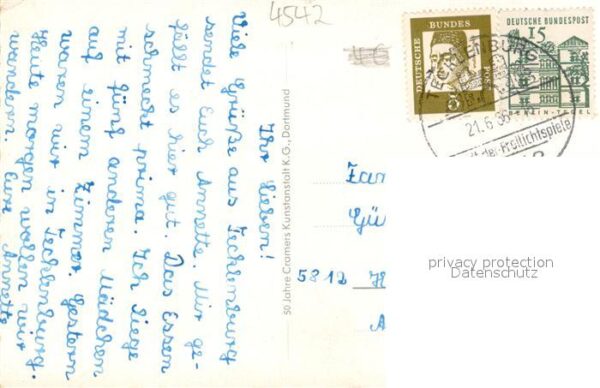 4542
Ihr Lieben!
Viele Grüße aus Tecklenburg
sendet Euch Annette. Mir ge-
fällt es hier gut. Das Essen
schmeckt prima. Ich liege
mit fünf anderen Mädchen
auf einem Zimmer. Gestern
waren wir in Tecklenburg.
Heute morgen wollen wir
wandern. Eure Annette
50 Jahre Cramers Kunstanstalt K.G., Dortmund
DEUTSCHE
BUNDES
POST
5
DEUTSCHE BUNDESPOST
15
BERLIN-TEGEL
TECKLENBURG
21.6.66
der Freilichtspiele
Fam
5812 H
privacy protection
Datenschutz